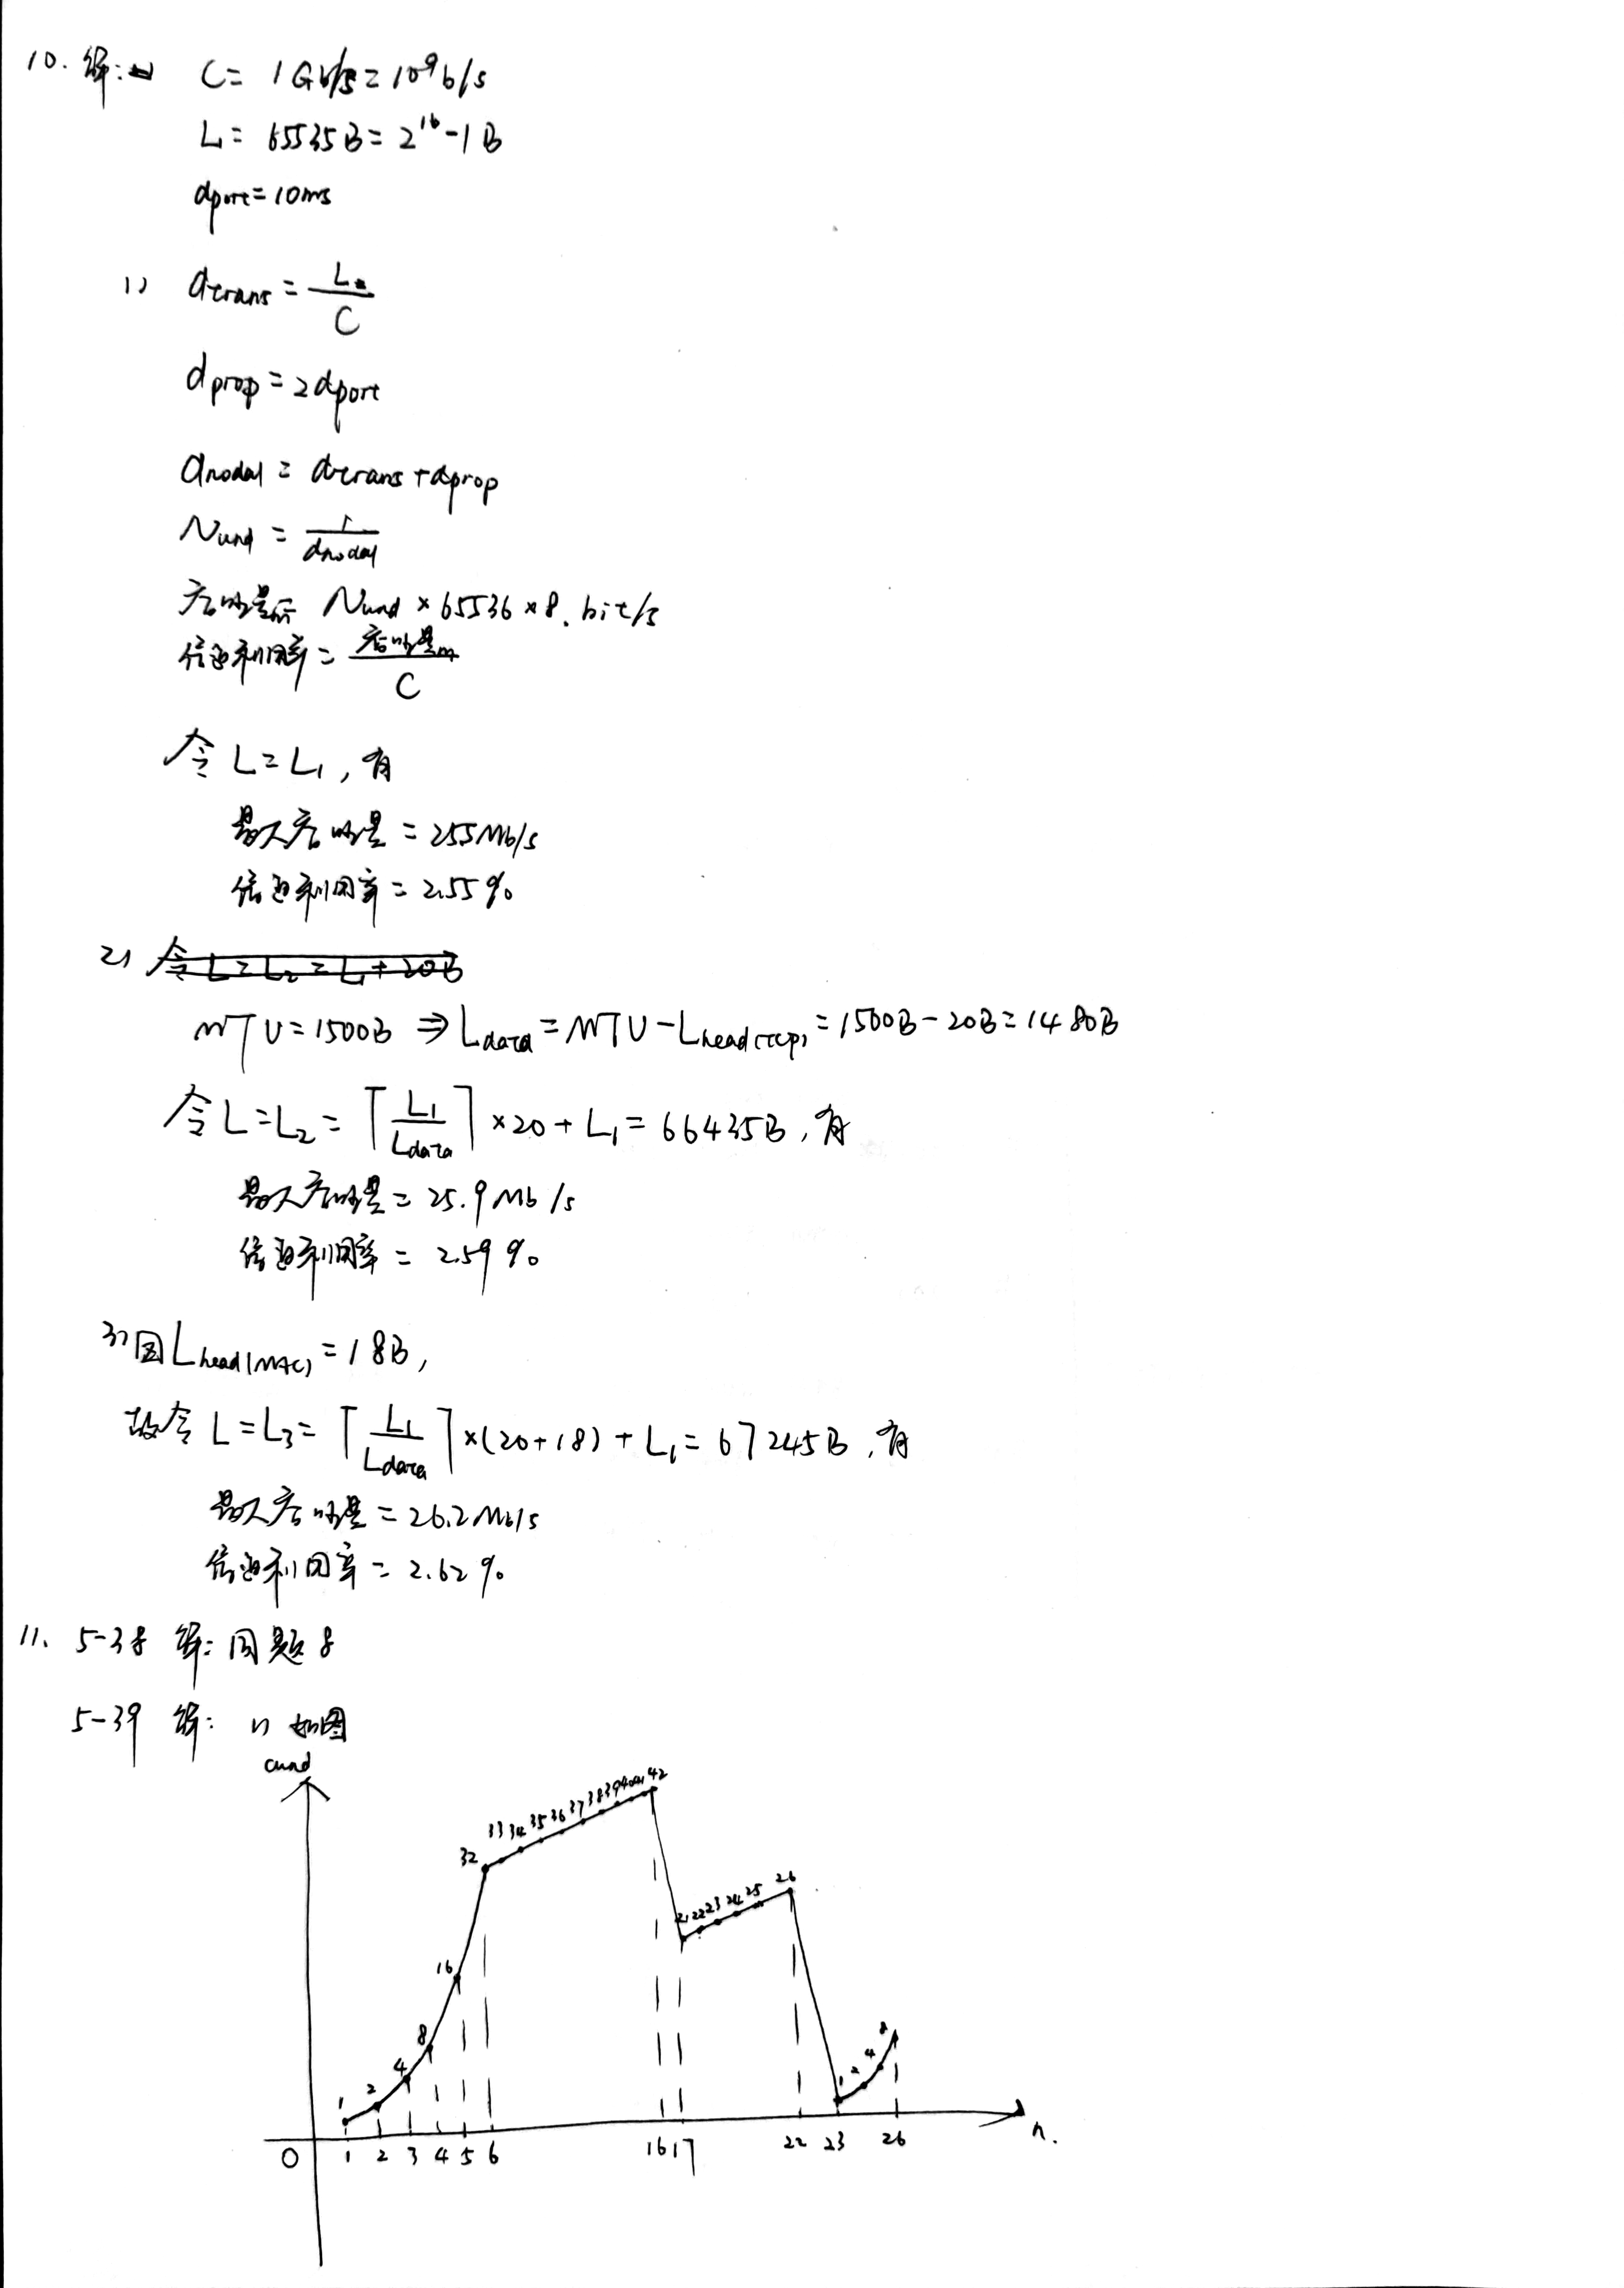 10. 解:
C = 1Gb/s = 10⁹b/s
L = 65535B = 2¹⁶-1 B
dport = 10ms
1) dtrans = L / C
dprop = 2dport
dnodal = dtrans + dprop
Nwnd = 1 / dnodal
吞吐量m = Nwnd × 65536 × 8. bit/s
信道利用率 = 吞吐量m / C
令 L = L₁, 有
最大吞吐量 = 255Mb/s
信道利用率 = 2.55%
2) 令 L = L₂ = L₁ + 20B
MTU = 1500B ⇒ Ldata = MTU - Lhead(TCP) = 1500B - 20B = 1480B
令 L = L₂ = ⌈L₁ / Ldata⌉ × 20 + L₁ = 66435B, 有
最大吞吐量 = 25.9Mb/s
信道利用率 = 2.59%
3) 因 Lhead(MAC) = 18B,
故令 L = L₃ = ⌈L₁ / Ldata⌉ × (20+18) + L₁ = 67245B, 有
最大吞吐量 = 26.2Mb/s
信道利用率 = 2.62%
11. 5-38 解: 同题8
5-39 解: 1) 如图
cwnd
1 2 4 8 16 32 33 34 35 36 37 38 39 40 41 42
21 22 23 24 25 26
1 2 4 8
0 1 2 3 4 5 6 16 17 22 23 26 n.